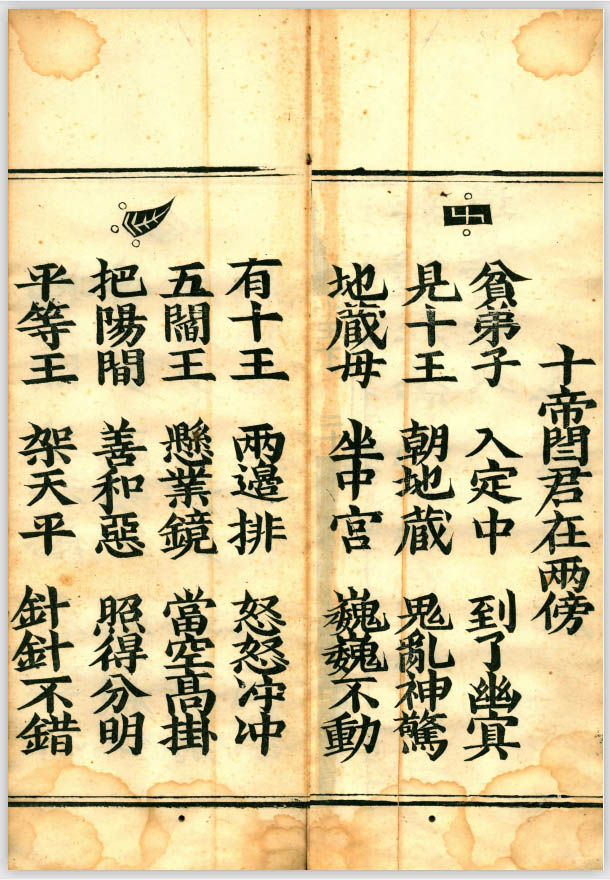 十帝閆君在兩傍
貧弟子 入定中 到了幽冥
見十王 朝地蔵 鬼亂神驚
地蔵母 坐中宮 巍巍不動
有十王 兩邊排 怒怒冲冲
五閻王 懸業鏡 當空高掛
把陽間 善和惡 照得分明
平等王 架天平 針針不錯